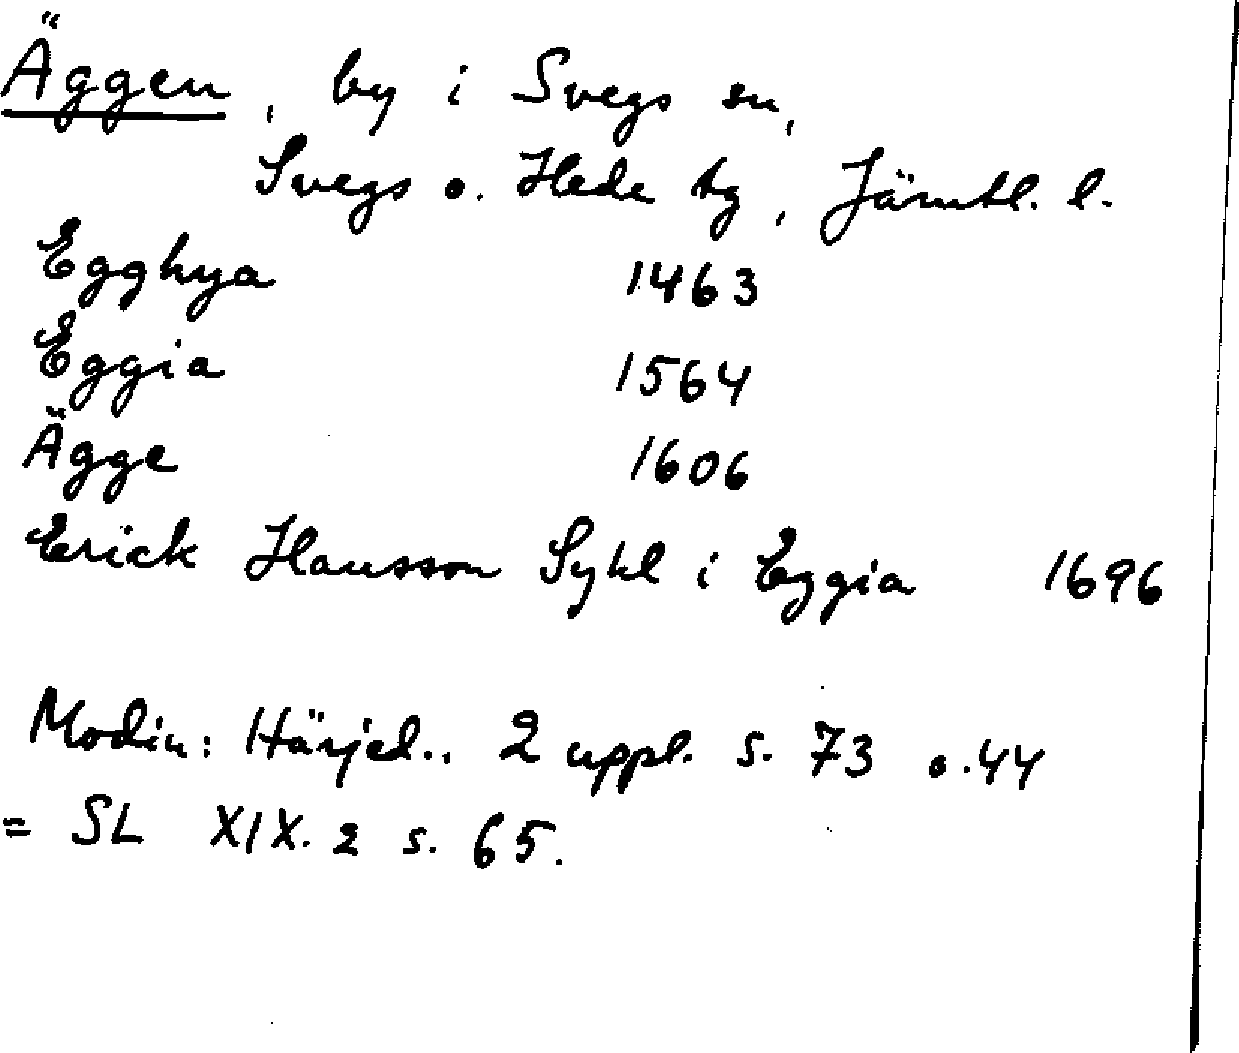 Äggen, by i Svegs sn,
Svegs o. Hede tg, Jämtl. l.
Egghya 1463
Eggia 1564
Ägge 1606
Erick Hansson Syhl i Eggia 1696
Modin: Härjed.. 2 uppl. s. 73 o. 44
= SL XIX. 2 s. 65.